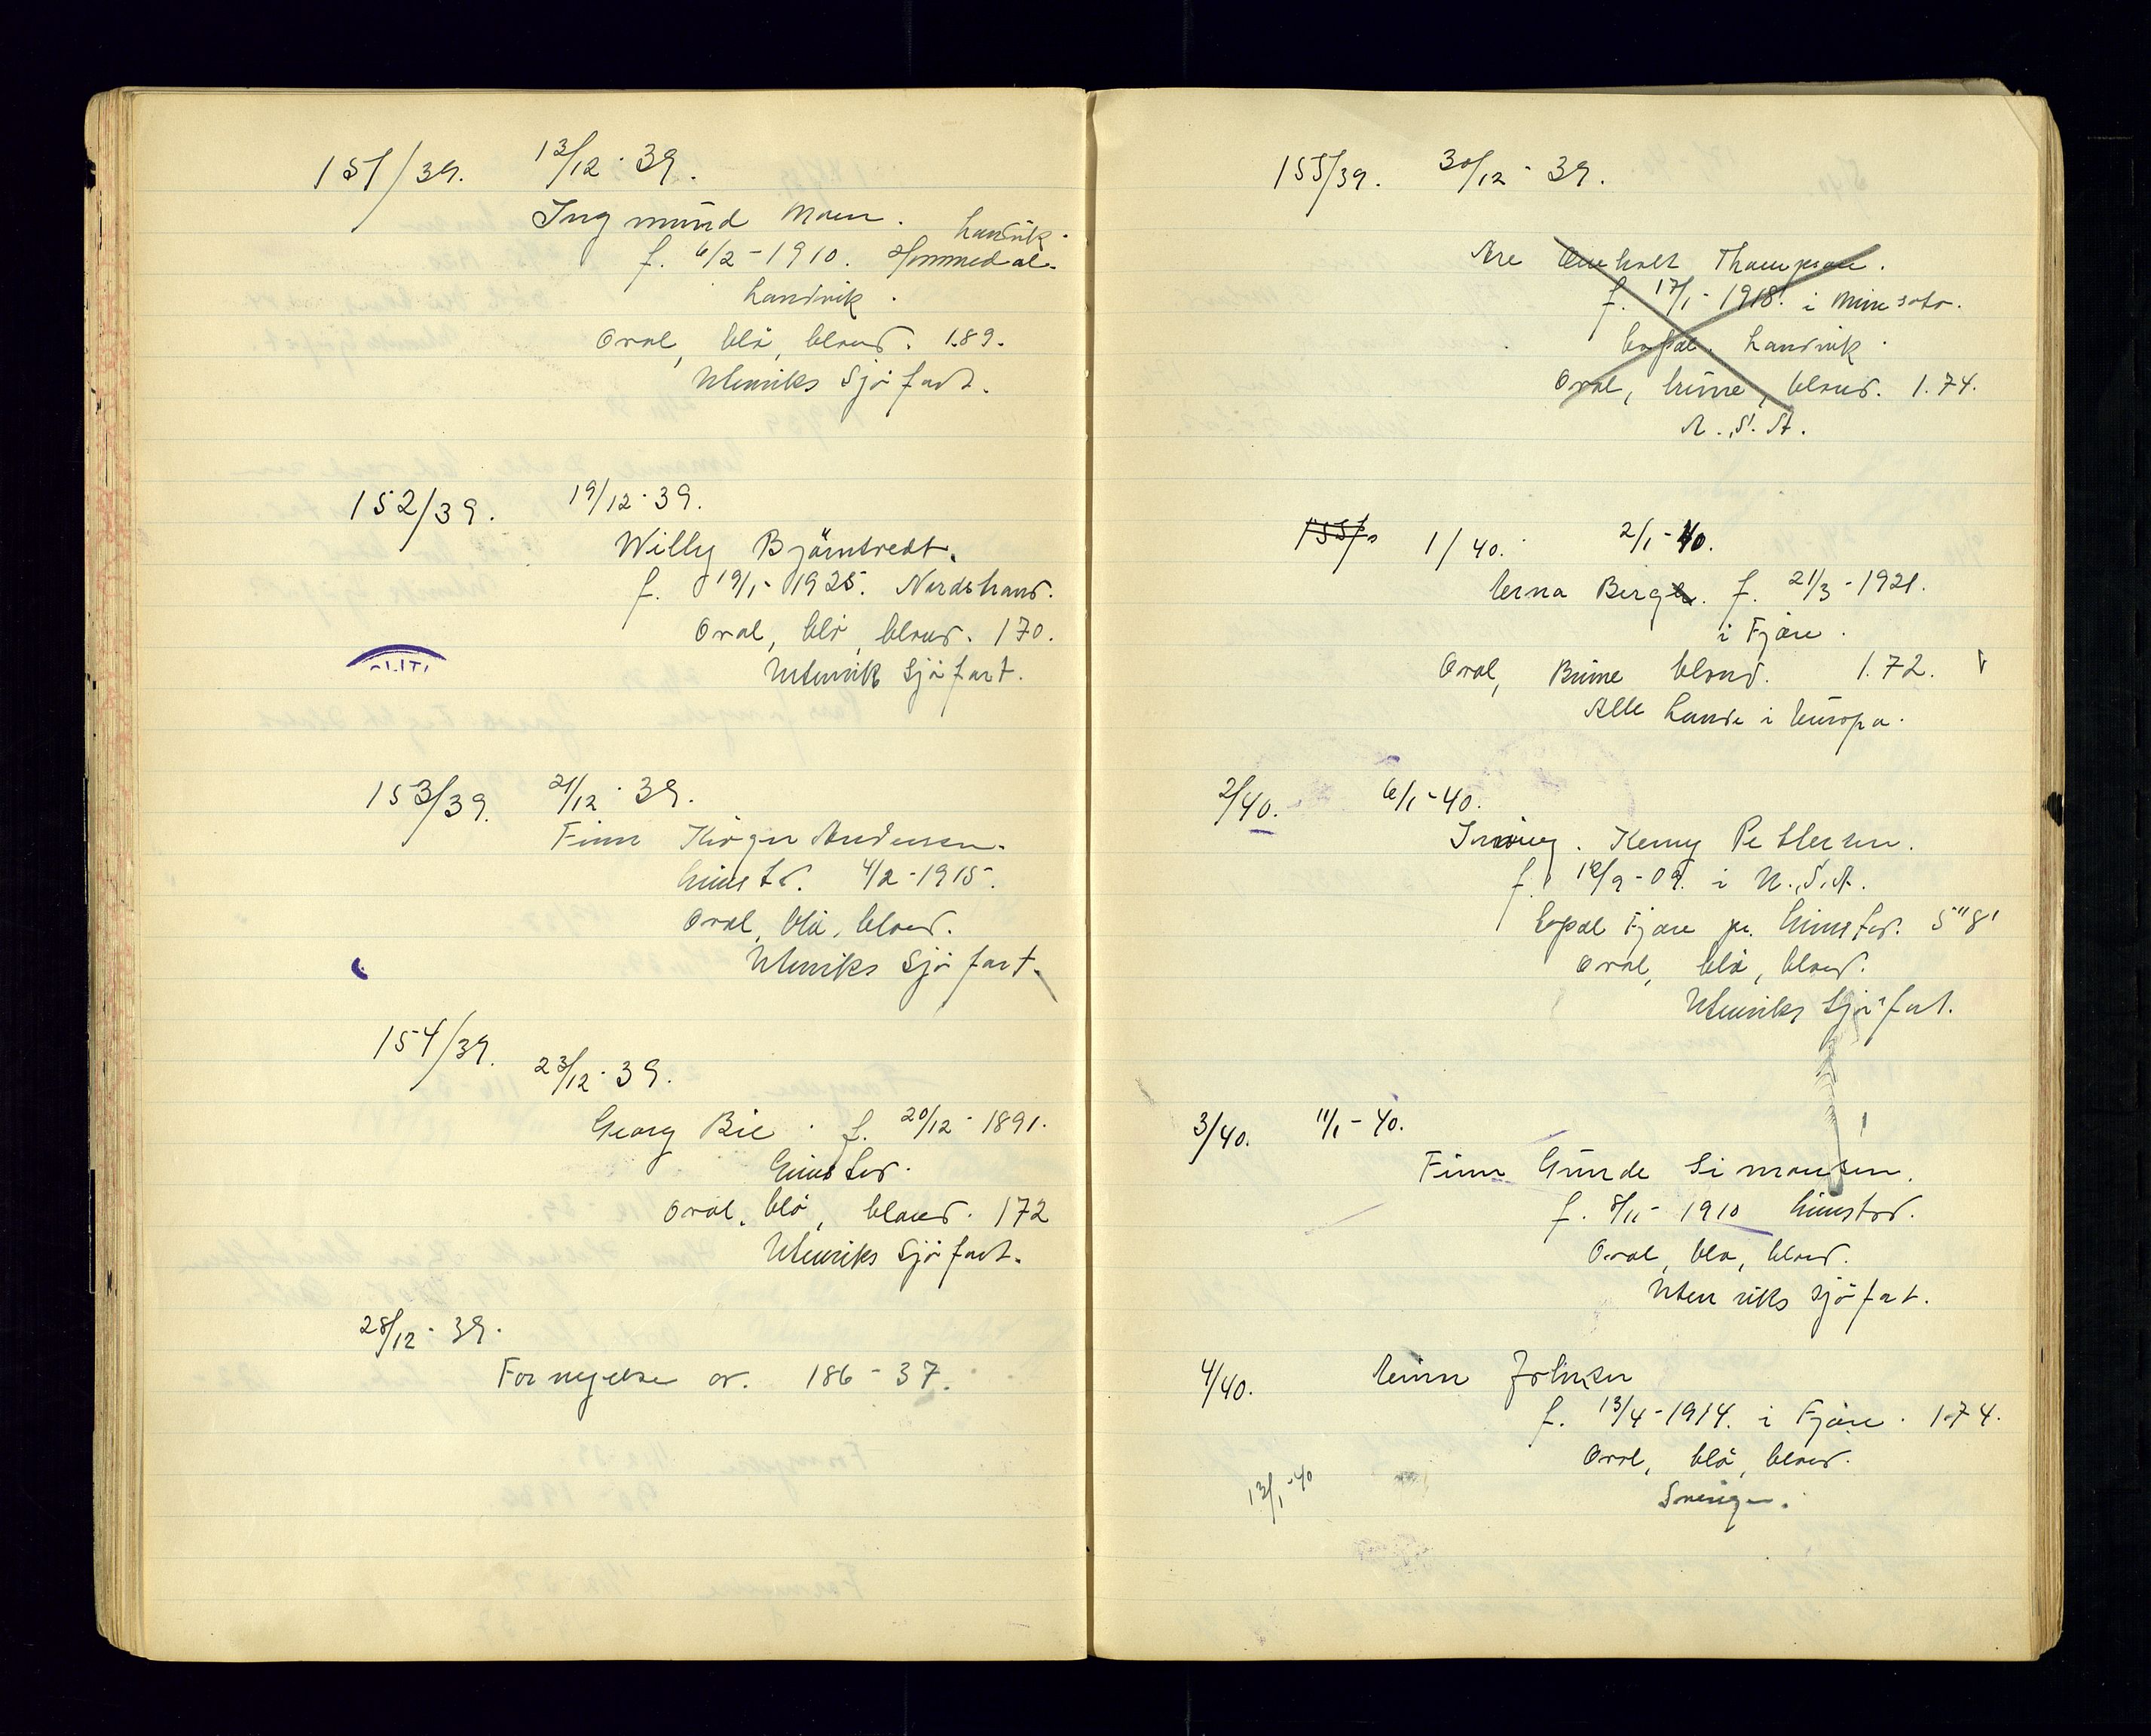 151/39. 13/12-39.
Ingmund Moen.
Landvik.
f. 6/2-1910. Hommedal.
Landvik.
Oval, blå, blond. 1.89.
Utenriks Sjöfart.
152/39. 19/12-39.
Willy Björntvedt.
f. 19/1-1925. Nordstrand.
Oval, blå, blond. 170.
Utenrik Sjöfart.
153/39. 21/12-39.
Finn Andersen.
Grimstd. 4/2-1915.
Oval, blå, blond.
Utenriks Sjöfart.
154/39.
23/12-39.
Georg Bie. f. 20/12-1891.
Grimstad.
Oval, blå, blond. 172
Utenriks Sjöfart.
28/12-39.
Fornyelse av. 186-37.
155/39. 30/12-39.
Are Thompson.
f. 17/1-1918. i Minesota.
bopal. Landvik.
Oval, brune, blond. 1.74.
U.S.A.
155/ 1/40. 2/1-40.
Erna Berge. f. 21/3-1921.
i Fjære.
Oval, Brune blond. 1.72.
Alle Lande i Europa.
2/40. 6/1-40.
Irving. Kenny Pettersen.
f. 12/9-09. i U.S.A.
bopal Fjære pr. Grimstad. 5"8'
Oval, blå, blond.
Utenriks Sjöfart.
3/40. 11/1-40.
Finn Gunde Simonsen.
f. 8/11-1910 Grimstad.
Oval, bla, blond.
Utenriks sjöfart.
4/40. Einar Johnsen
f. 13/4-1914. i Fjære. 1.74.
Oval, blå, blond.
12/1-40
Sverige.